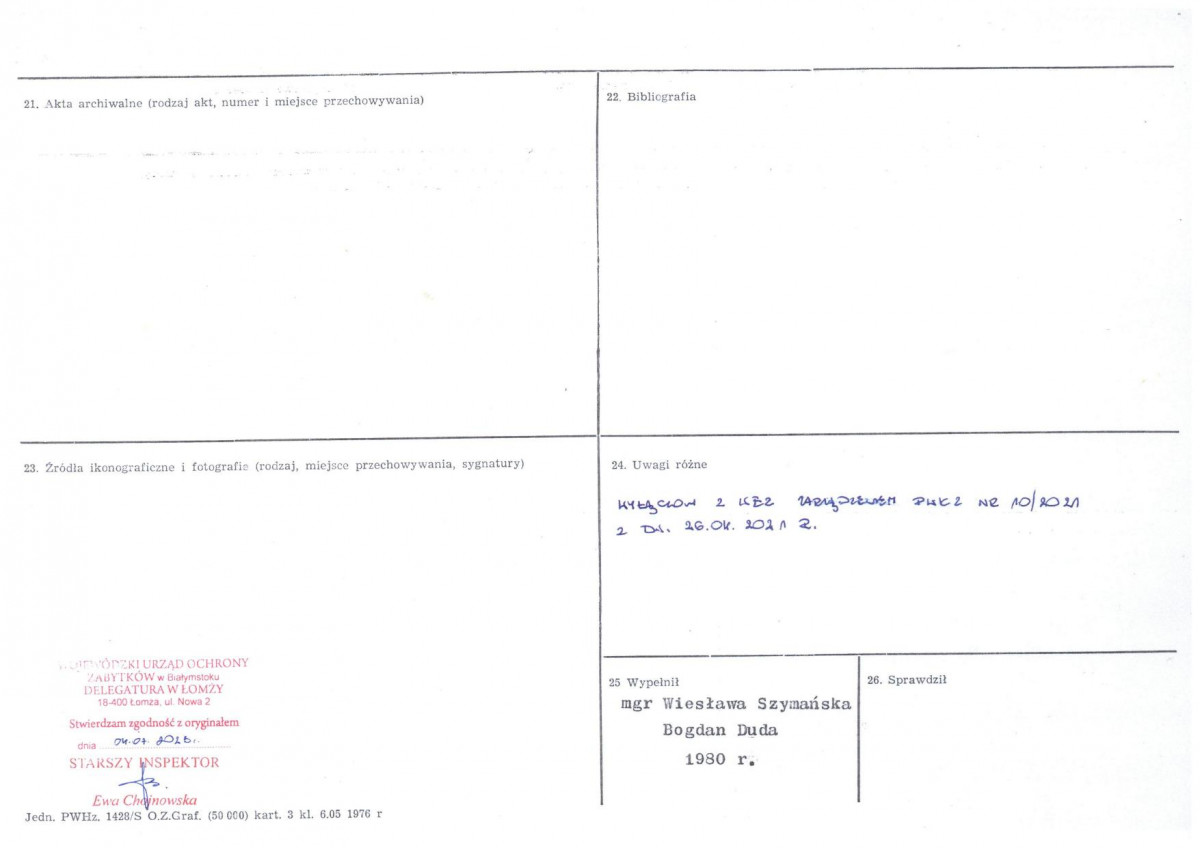 21. Akta archiwalne (rodzaj akt, numer i miejsce przechowywania)
22. Bibliografia
23. Źródła ikonograficzne i fotografie (rodzaj, miejsce przechowywania, sygnatury)
24. Uwagi różne
Z KEZ ZARZĄDZENIEM PWKZ NR 10/2021
Z DN. 26.04.2021 R.
WOJEWÓDZKI URZĄD OCHRONY
ZABYTKÓW w Białymstoku
DELEGATURA W ŁOMŻY
18-400 Łomża, ul. Nowa 2
Stwierdzam zgodność z oryginałem
dnia
STARSZY INSPEKTOR
Ewa Chojnowska
25 Wypełnił
mgr Wiesława Szymańska
Bogdan Duda
1980 r.
26. Sprawdził
Jedn. PWHz. 1428/S O.Z.Graf. (50 000) kart. 3 kl. 6.05 1976 r